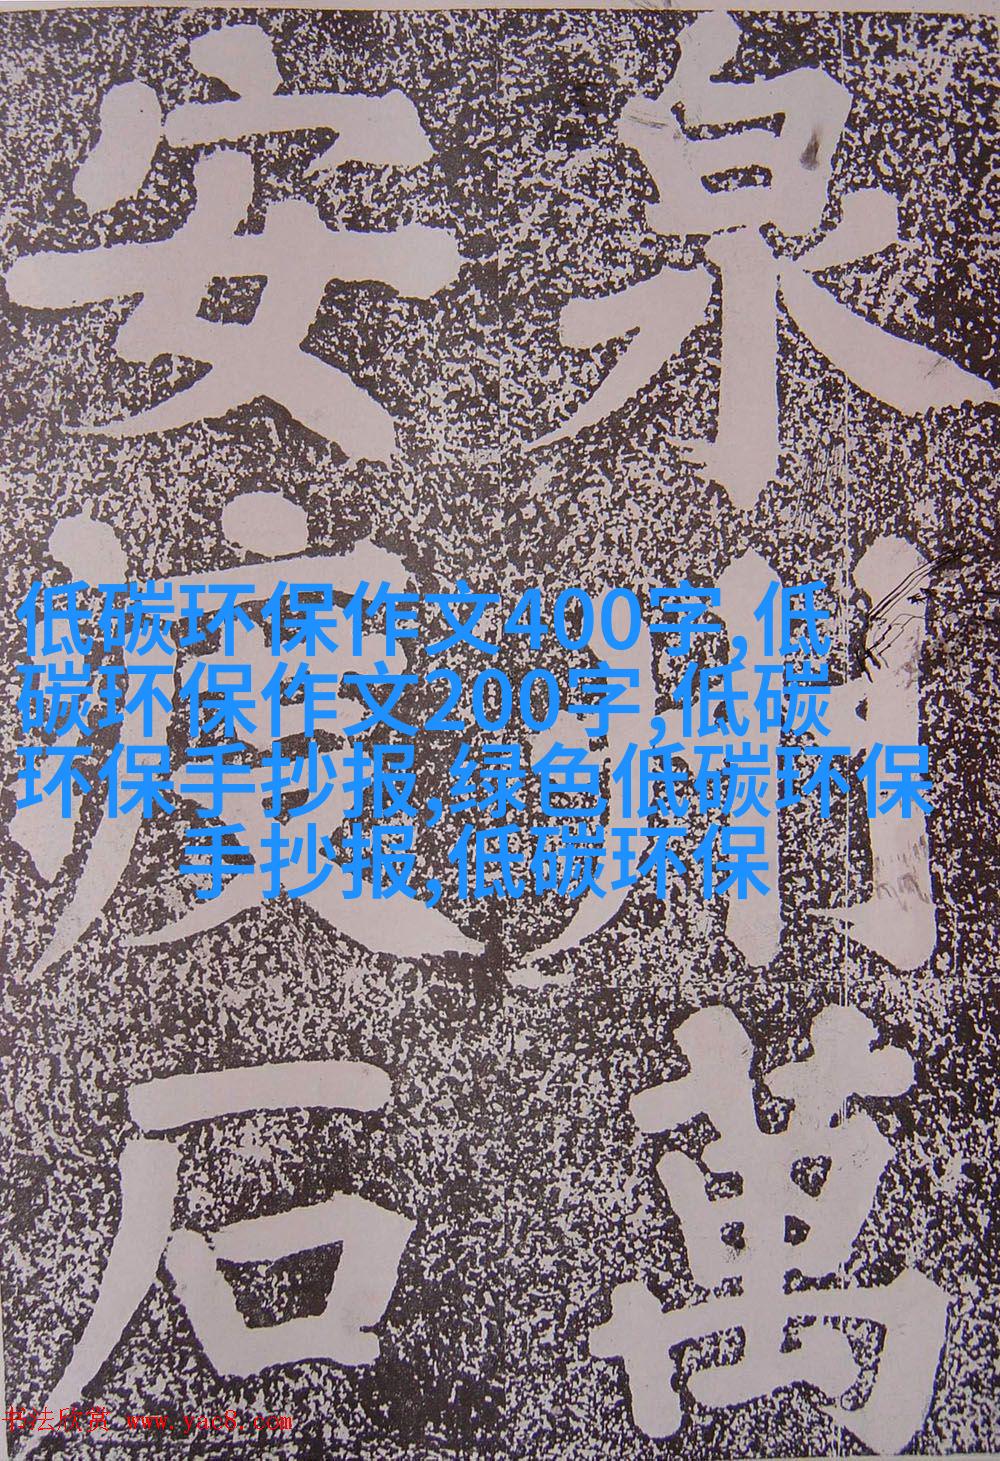 泉州萬
安渡石
低碳环保作文400字,低
碳环保作文200字,低碳
环保手抄报,绿色低碳环保
手抄报,低碳环保
书法欣赏 www.yac8.com